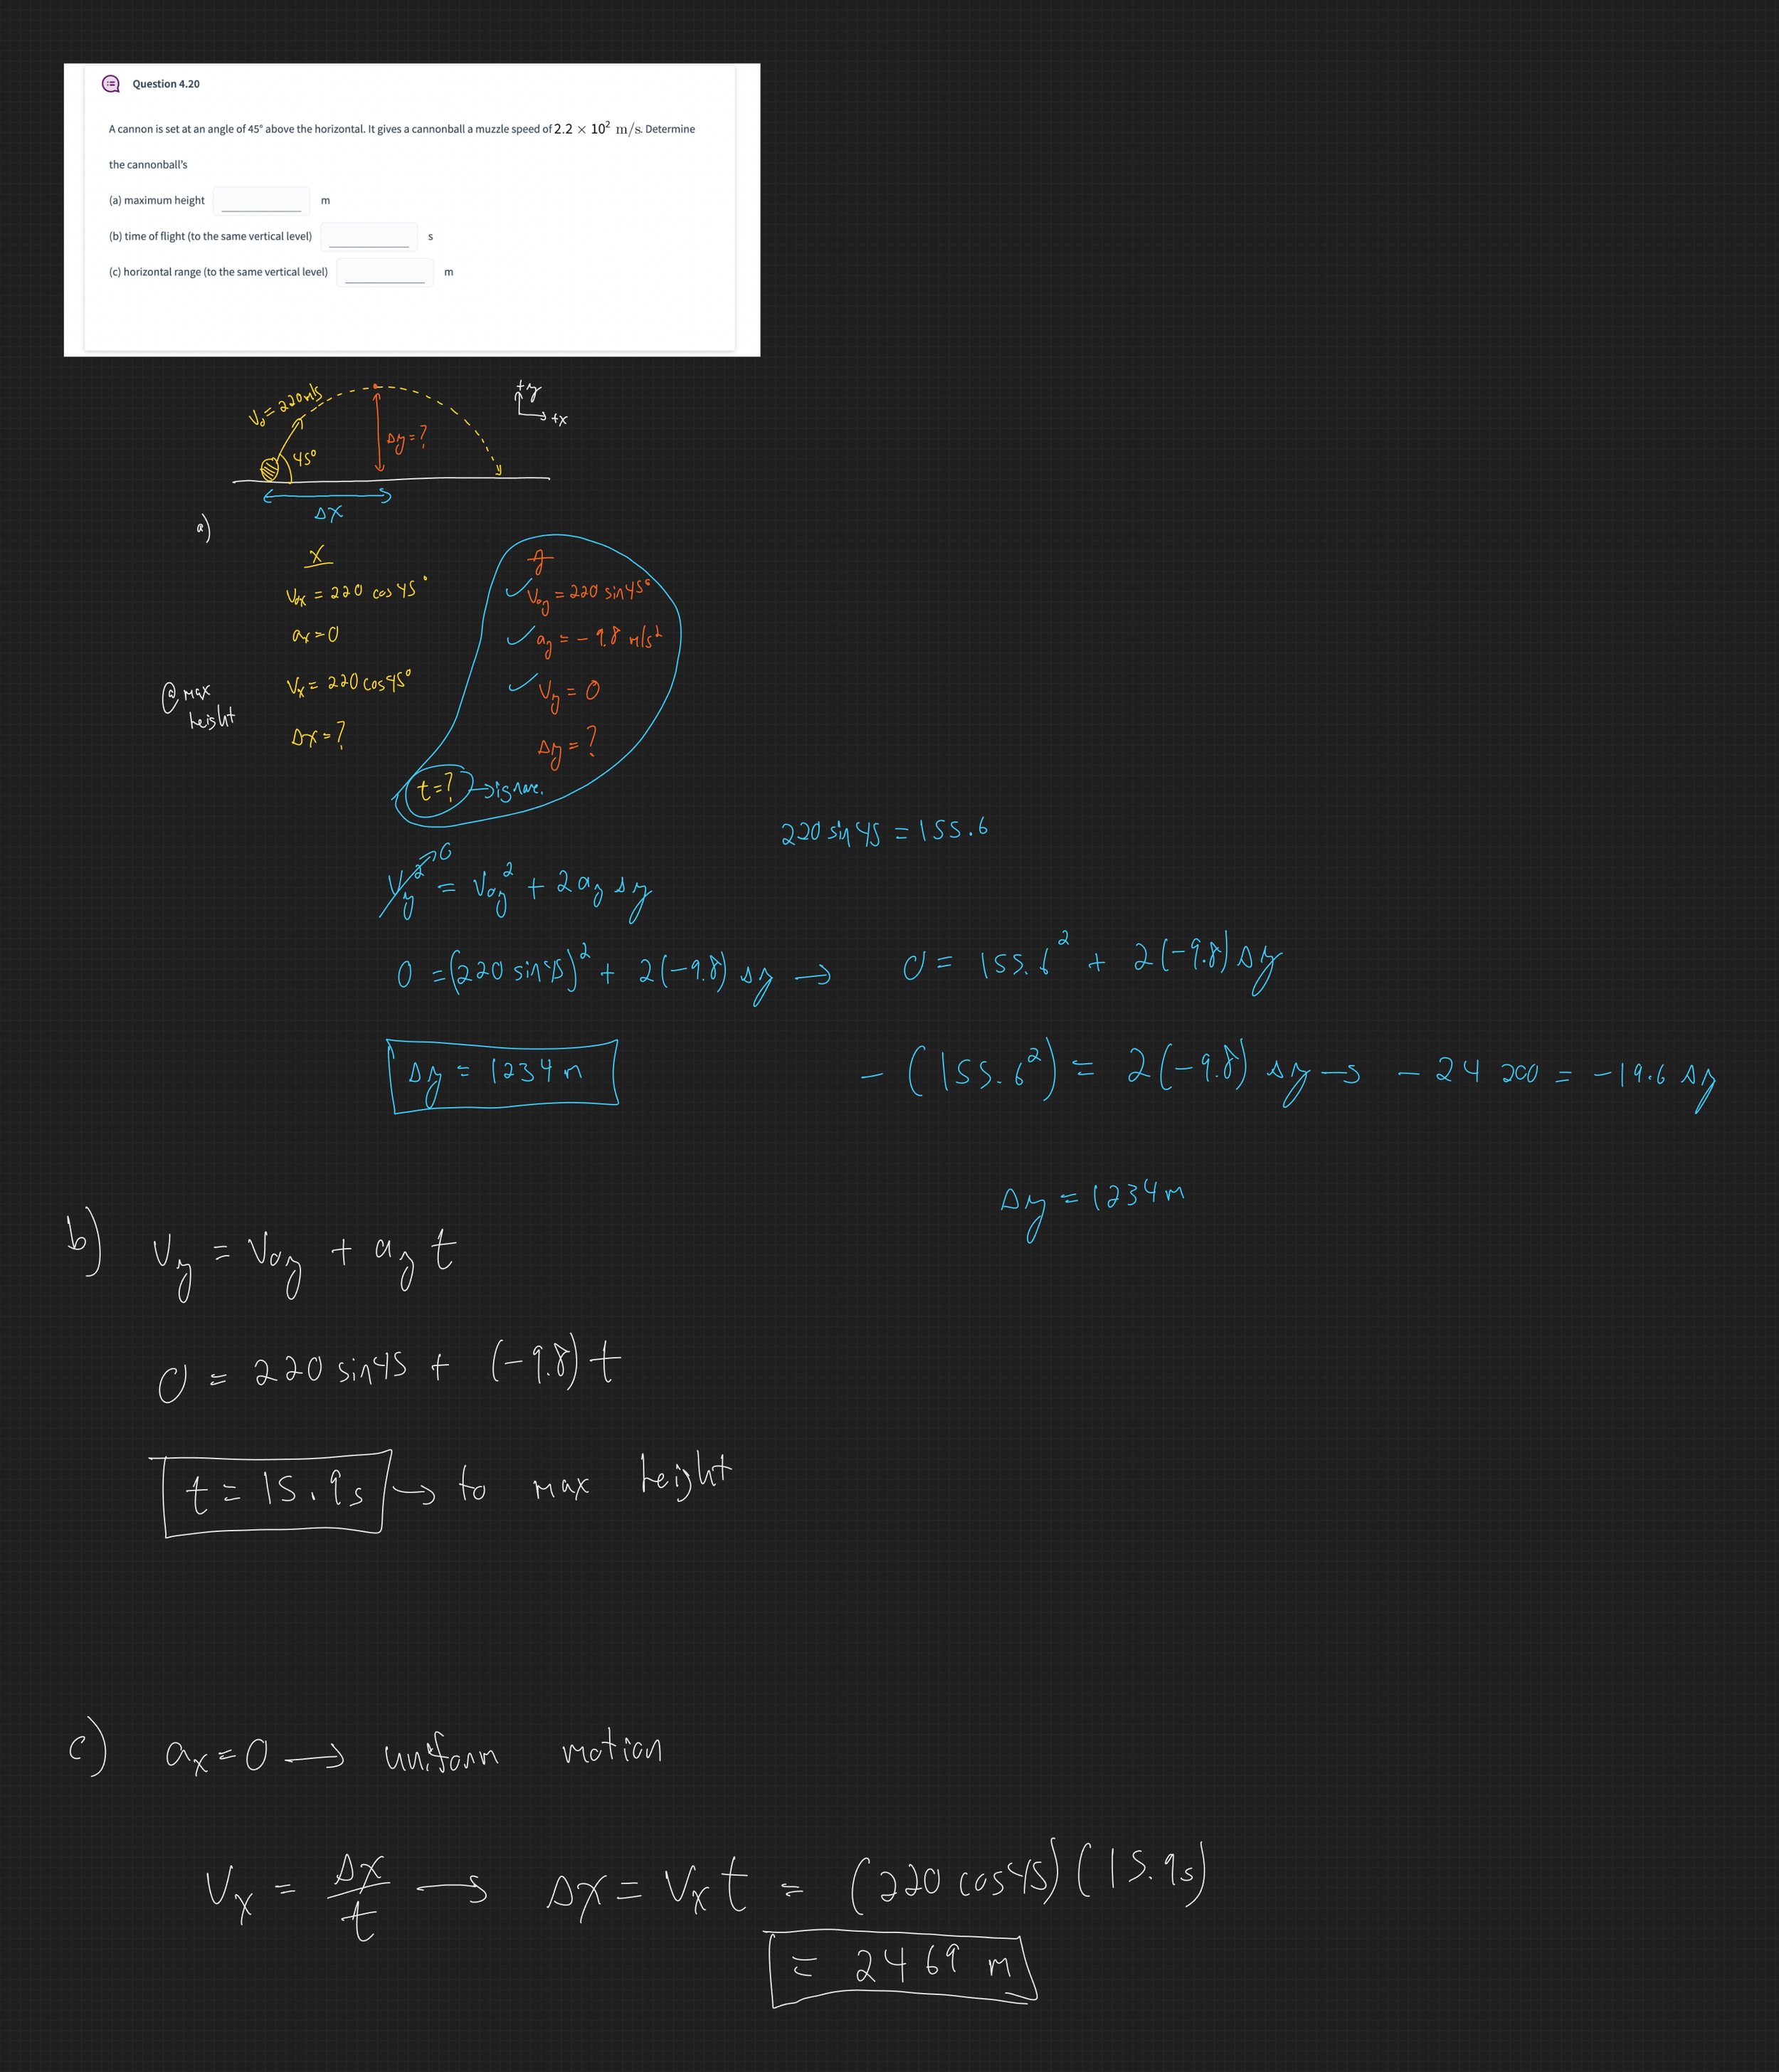 Question 4.20
A cannon is set at an angle of 45° above the horizontal. It gives a cannonball a muzzle speed of 2.2 × 10² m/s. Determine
the cannonball's
(a) maximum height m
(b) time of flight (to the same vertical level) s
(c) horizontal range (to the same vertical level) m
V₀ = 220 m/s
+y
+x
Δy = ?
45°
Δx
a)
x
y
V₀ₓ = 220 cos 45°
V₀y = 220 sin 45°
aₓ = 0
ay = - 9.8 m/s²
@ max height
Vₓ = 220 cos 45°
Vy = 0
Δx = ?
Δy = ?
t = ? → ignore.
220 sin 45 = 155.6
Vy² → 0 = V₀y² + 2 ay Δy
0 = (220 sin 45)² + 2(-9.8) Δy → 0 = 155.6² + 2(-9.8) Δy
Δy = 1234 m
- (155.6²) = 2(-9.8) Δy → - 24 200 = - 19.6 Δy
Δy = 1234 m
b) Vy = V₀y + ay t
0 = 220 sin 45 + (-9.8) t
t = 15.9 s → to max height
c) aₓ = 0 → uniform motion
Vₓ = Δx / t → Δx = Vₓ t = (220 cos 45) (15.9 s)
= 2469 m